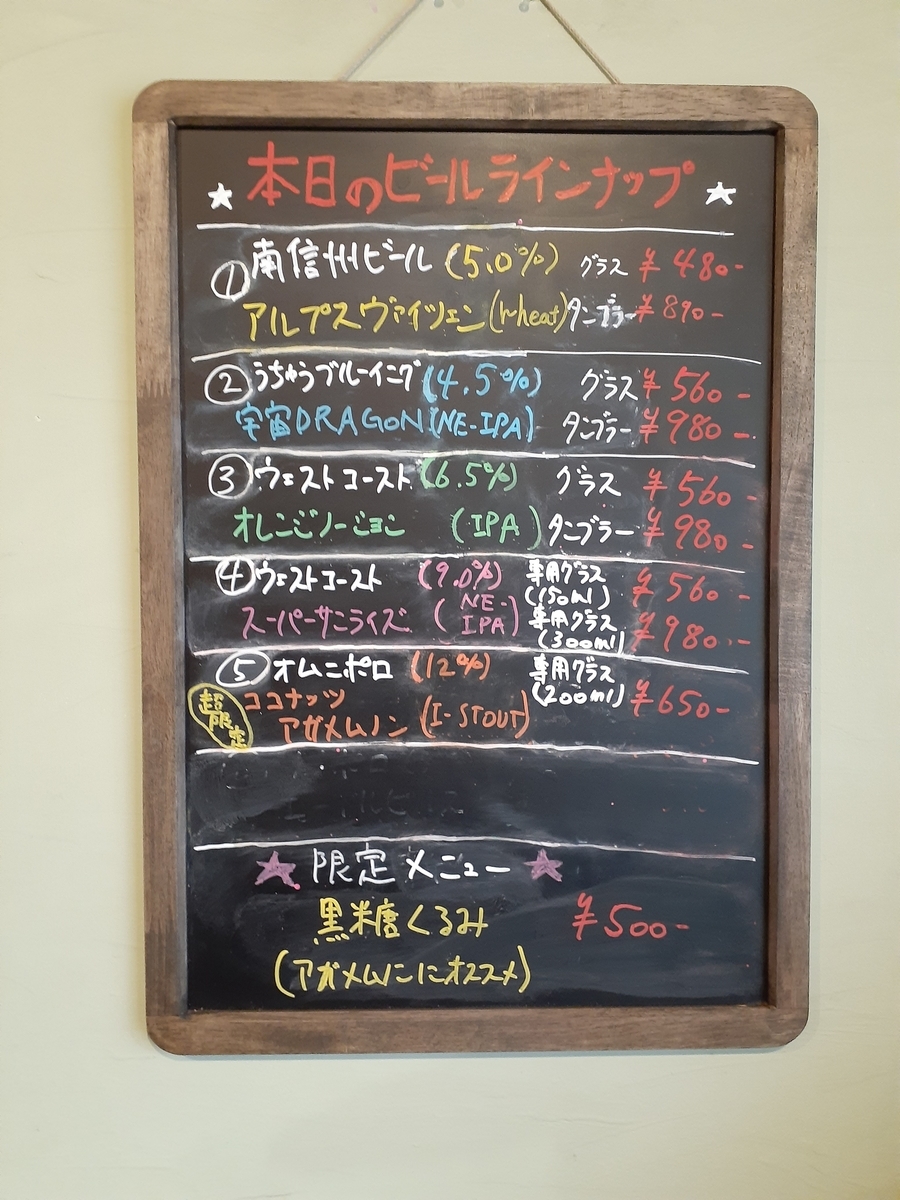 ★ 本日のビールラインナップ ★
① 南信州ビール (5.0%) グラス ¥480-
アルプスヴァイツェン (wheat) タンブラー ¥890-
② うちゅうブルーイング (4.5%) グラス ¥560-
宇宙DRAGON (NE-IPA) タンブラー ¥980-
③ ウェストコースト (6.5%) グラス ¥560-
オレンジノーション (IPA) タンブラー ¥980-
④ ウェストコースト (9.0%) 専用グラス (150ml) ¥560-
スーパーサンライズ (NE-IPA) 専用グラス (300ml) ¥980-
⑤ オムニポロ (12%) 専用グラス (200ml) ¥650-
超限定 ココナッツ
アガメムノン (I-STOUT)
★ 限定メニュー ★
黒糖くるみ ¥500-
(アガメムノンにオススメ)